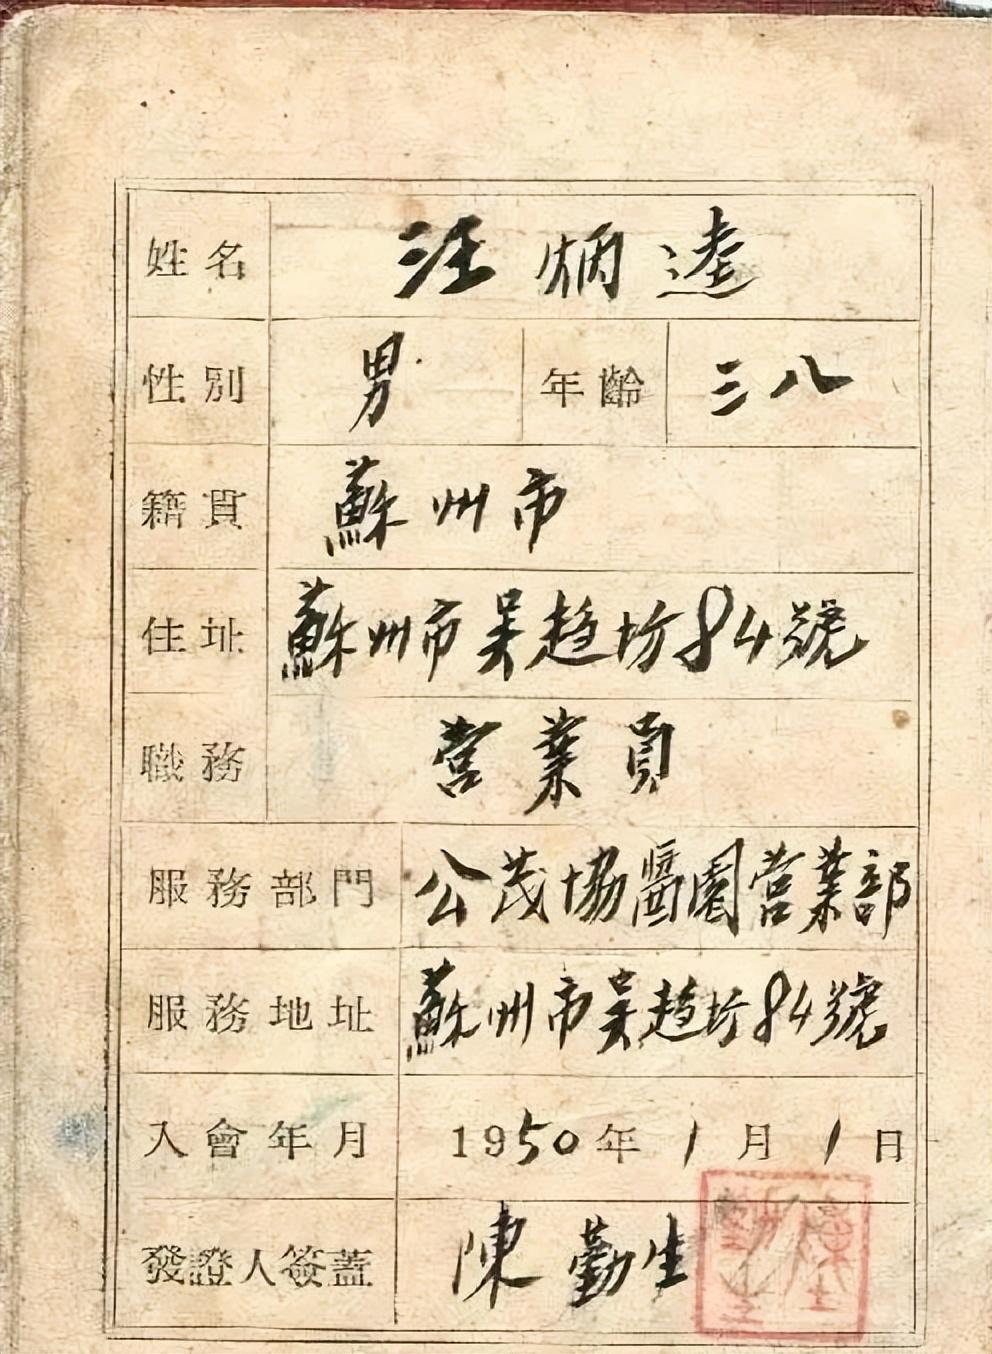 姓名 汪炳逵
性别 男 年齡 三八
籍貫 蘇州市
住址 蘇州市吴趋坊84號
職務 营業員
服務部門 公茂協醬園营業部
服務地址 蘇州市吴趋坊84號
入會年月 1950年1月1日
發證人簽蓋 陳勤生